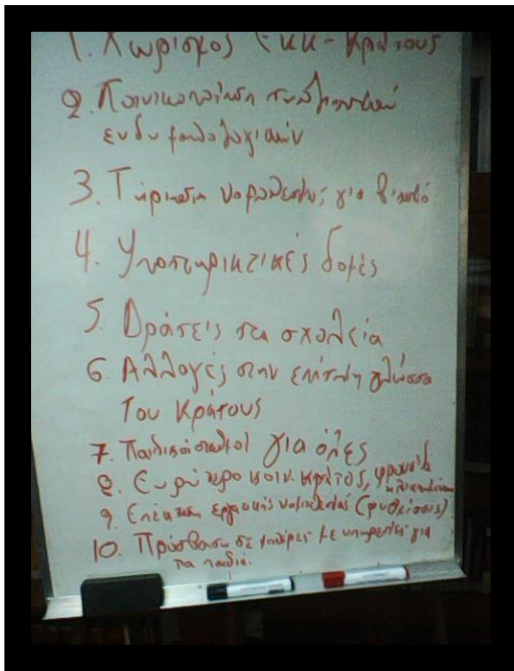 1. Χωρισμός Εκκ-Κράτους
2. Ποινικοποίηση
3. νομοθεσίας για βιασμό
4. Υποστηρικτικές δομές
5. Δράσεις στα σχολεία
6. Αλλαγές στην επίσημη γλώσσα
του κράτους
7. Παιδικοί σταθμοί για όλες
8. Ευρύτερο κοιν. κράτος, φροντίδα
9. Επέκταση εργασιακής νομοθεσίας (ρυθμίσεις)
10. Πρόσβαση σε μητέρες με υπηρεσίες για
τα παιδιά.